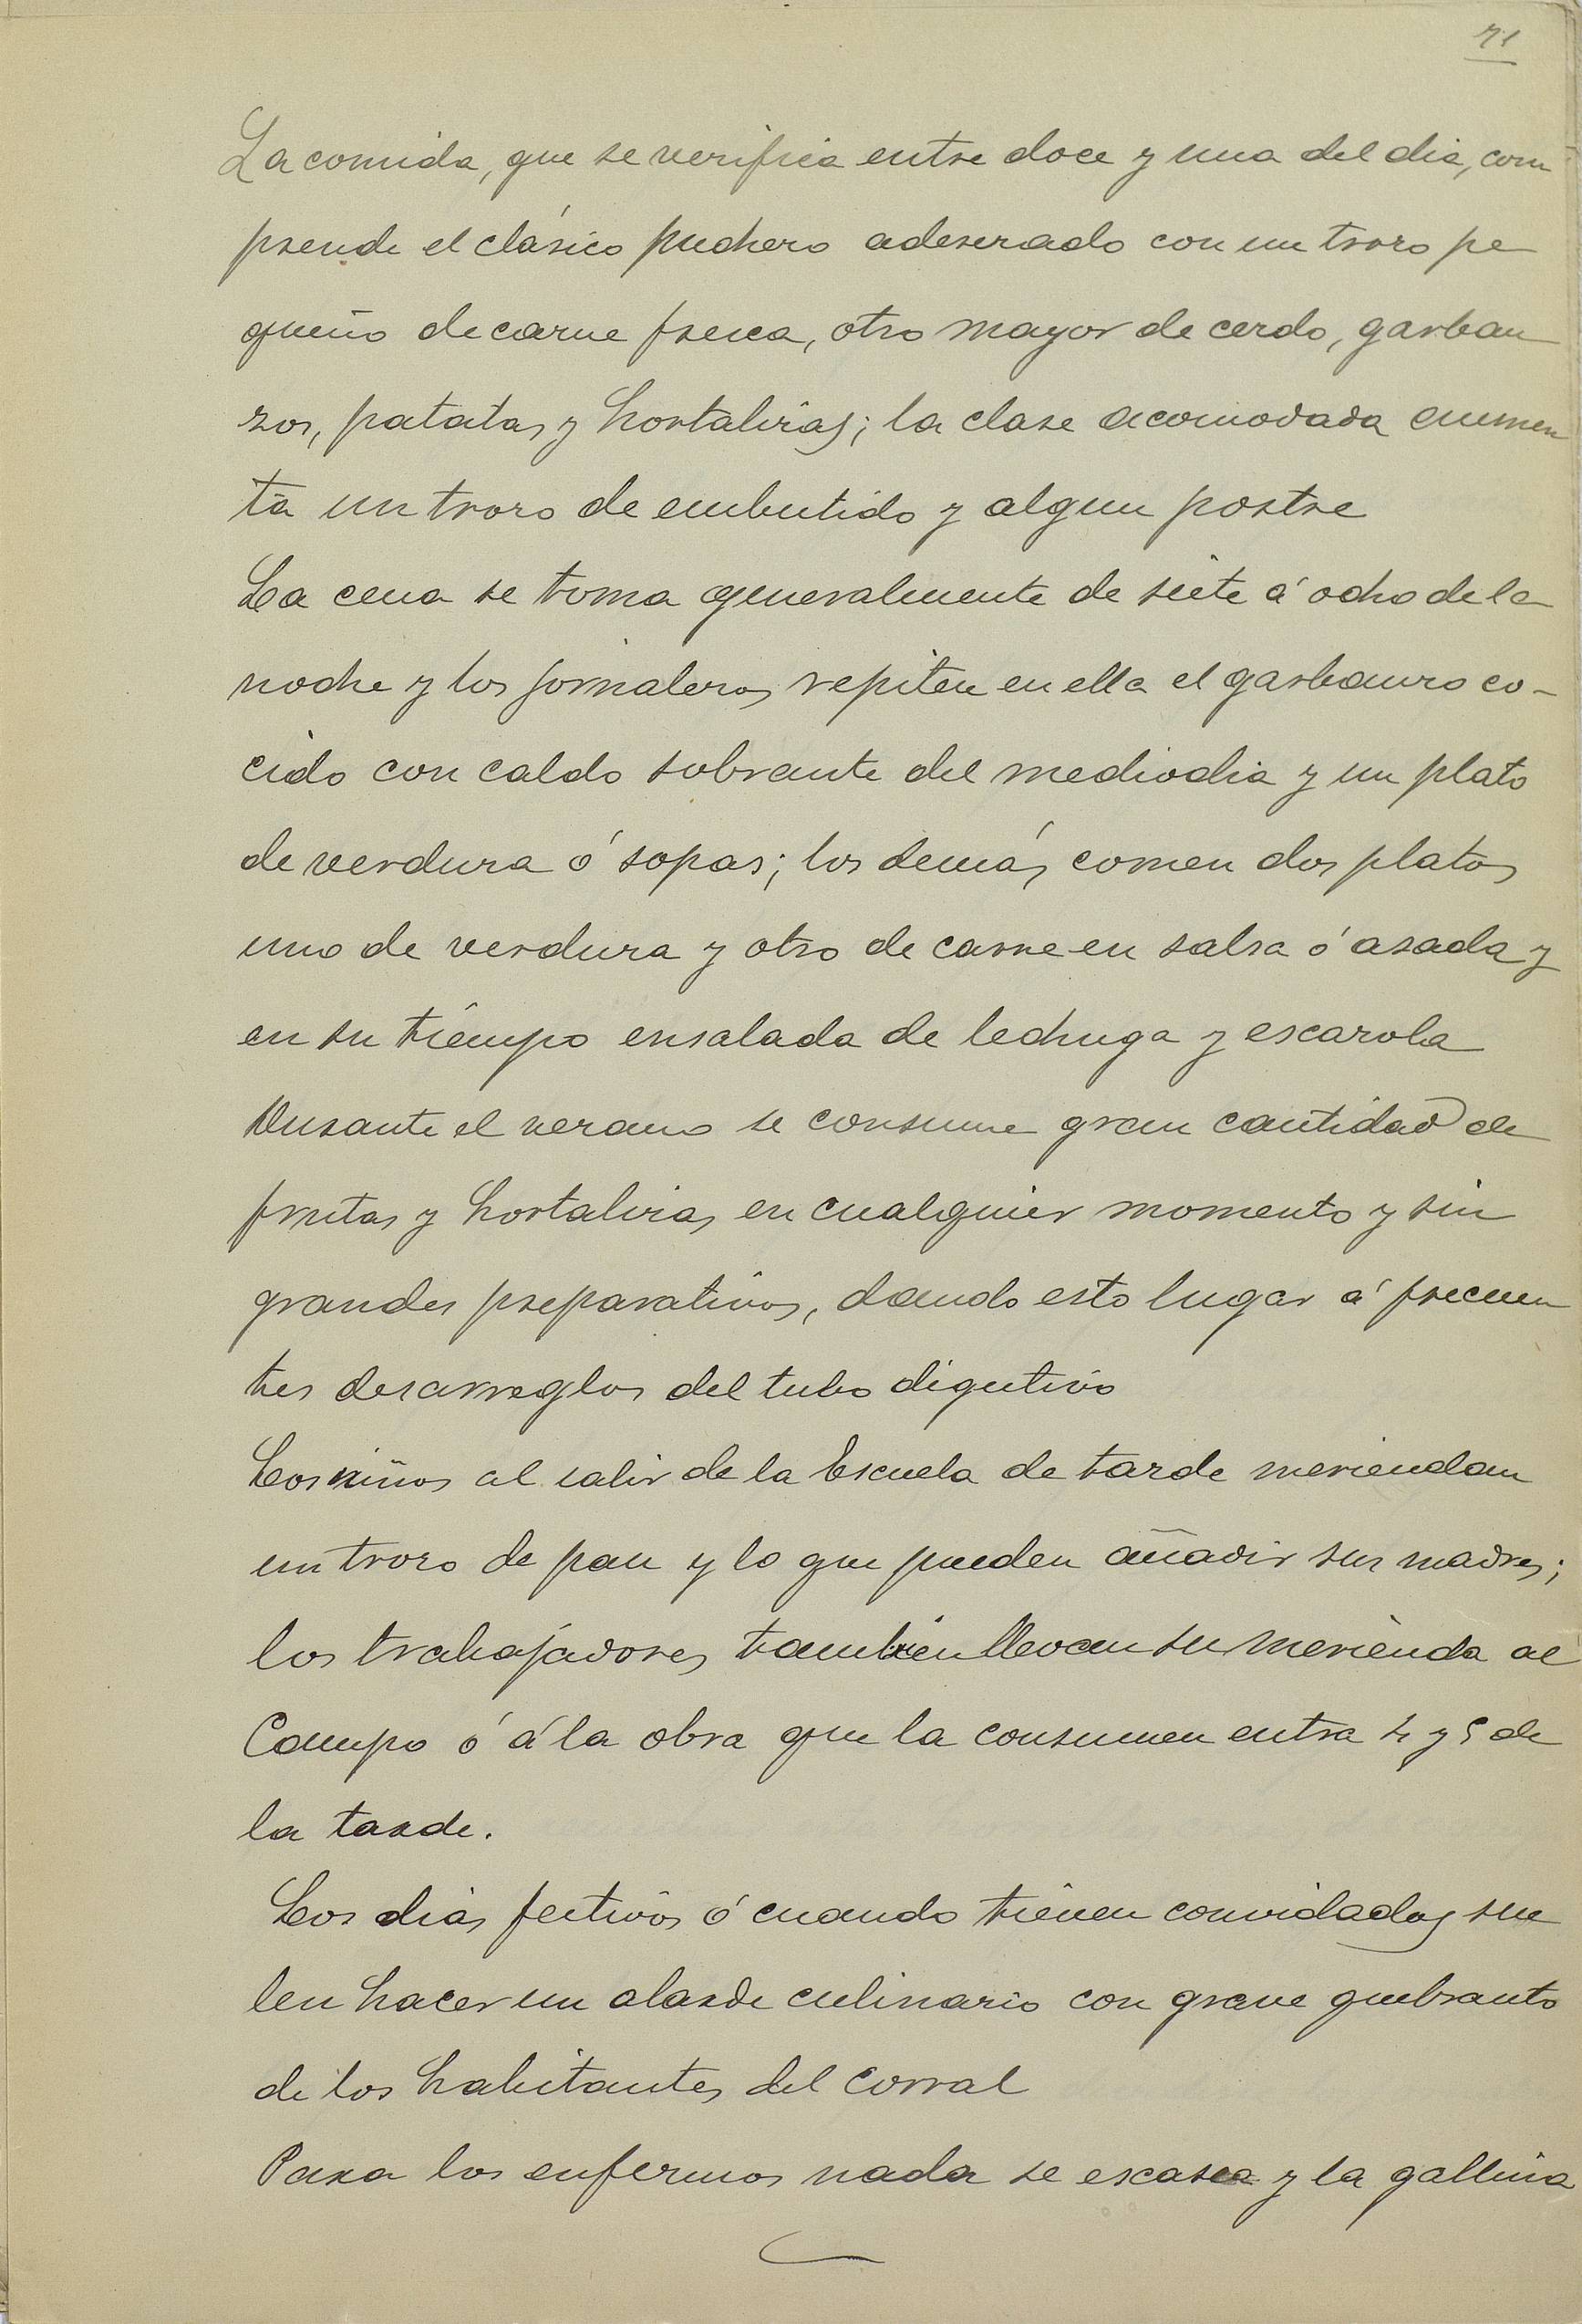 71
La comida, que se verifica entre doce y una del dia, com
prende el clásico puchero aderezado con un trozo pe
queño de carne fresca, otro mayor de cerdo, garban
zos, patatas y hortalizas; la clase acomodada aumen
ta un trozo de embutido y algun postre
La cena se toma generalmente de siete á ocho de la
noche y los jornaleros repiten en ella el garbanzo co-
cido con caldo sobrante del mediodia y un plato
de verdura ó sopas; los demás comen dos platos
uno de verdura y otro de carne en salsa ó asada y
en su tiempo ensalada de lechuga y escarola
Durante el verano se consume gran cantidad de
frutas y hortalizas en cualquier momento y sin
grandes preparativos, dando esto lugar á frecuen
tes desarreglos del tubo digestivo
Los niños al salir de la Escuela de tarde meriendan
un trozo de pan y lo que pueden añadir sus madres;
los trabajadores tambien llevan su merienda al
Campo ó á la obra que la consumen entre 4 y 5 de
la tarde.
Los dias festivos ó cuando tienen convidados sue
len hacer un alarde culinario con grave quebranto
de los habitantes del corral
Para los enfermos nada se escasea y la gallina